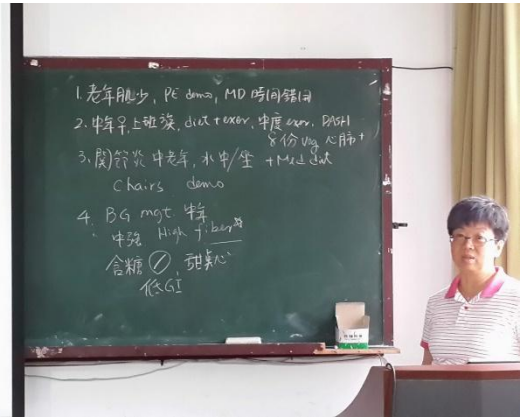 1. 老年肌少, PE demo, MD 時間錯開
2. 中年早, 上班族, diet + exer, 中度 exer, DASH
8份 veg 心肺+
3. 關節炎 中老年, 水中/坐 + Med diat
Chairs demo
4. BG mgt. 中年
中強 High fiber
含糖 甜點
低GI